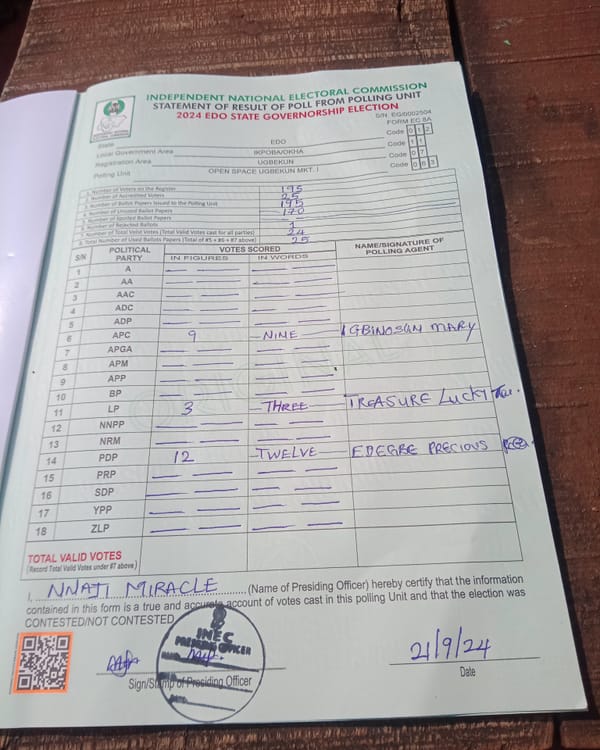 INDEPENDENT NATIONAL ELECTORAL COMMISSION
STATEMENT OF RESULT OF POLL FROM POLLING UNIT
2024 EDO STATE GOVERNORSHIP ELECTION
S/N: EG/0002504
FORM EC 8A
State EDO Code 0 1 2
Local Government Area IKPOBA/OKHA Code 1 1
Registration Area UGBEKUN Code 0 7
Polling Unit OPEN SPACE UGBEKUN MKT. I Code 0 6 3
1. Number of Voters on the Register 195
2. Number of Accredited Voters 25
3. Number of Ballot Papers Issued to the Polling Unit 195
4. Number of Unused Ballot Papers 170
5. Number of Spoiled Ballot Papers
6. Number of Rejected Ballots 1
7. Number of Total Valid Votes (Total Valid Votes cast for all parties) 24
8. Total Number of Used Ballots Papers (Total of #5 + #6 + #7 above) 25
S/N POLITICAL PARTY VOTES SCORED NAME/SIGNATURE OF POLLING AGENT
IN FIGURES IN WORDS
1 A
2 AA
3 AAC
4 ADC
5 ADP
6 APC 9 NINE IGBINOSUN MARY
7 APGA
8 APM
9 APP
10 BP
11 LP 3 THREE TREASURE LUCKY
12 NNPP
13 NRM
14 PDP 12 TWELVE EDEGBE PRECIOUS
15 PRP
16 SDP
17 YPP
18 ZLP
TOTAL VALID VOTES
(Record Total Valid Votes under #7 above)
I, NNAJI MIRACLE (Name of Presiding Officer) hereby certify that the information
contained in this form is a true and accurate account of votes cast in this polling Unit and that the election was
CONTESTED/NOT CONTESTED
INEC
PRESIDING OFFICER
21/9/24
Sign/Stamp of Presiding Officer
Date